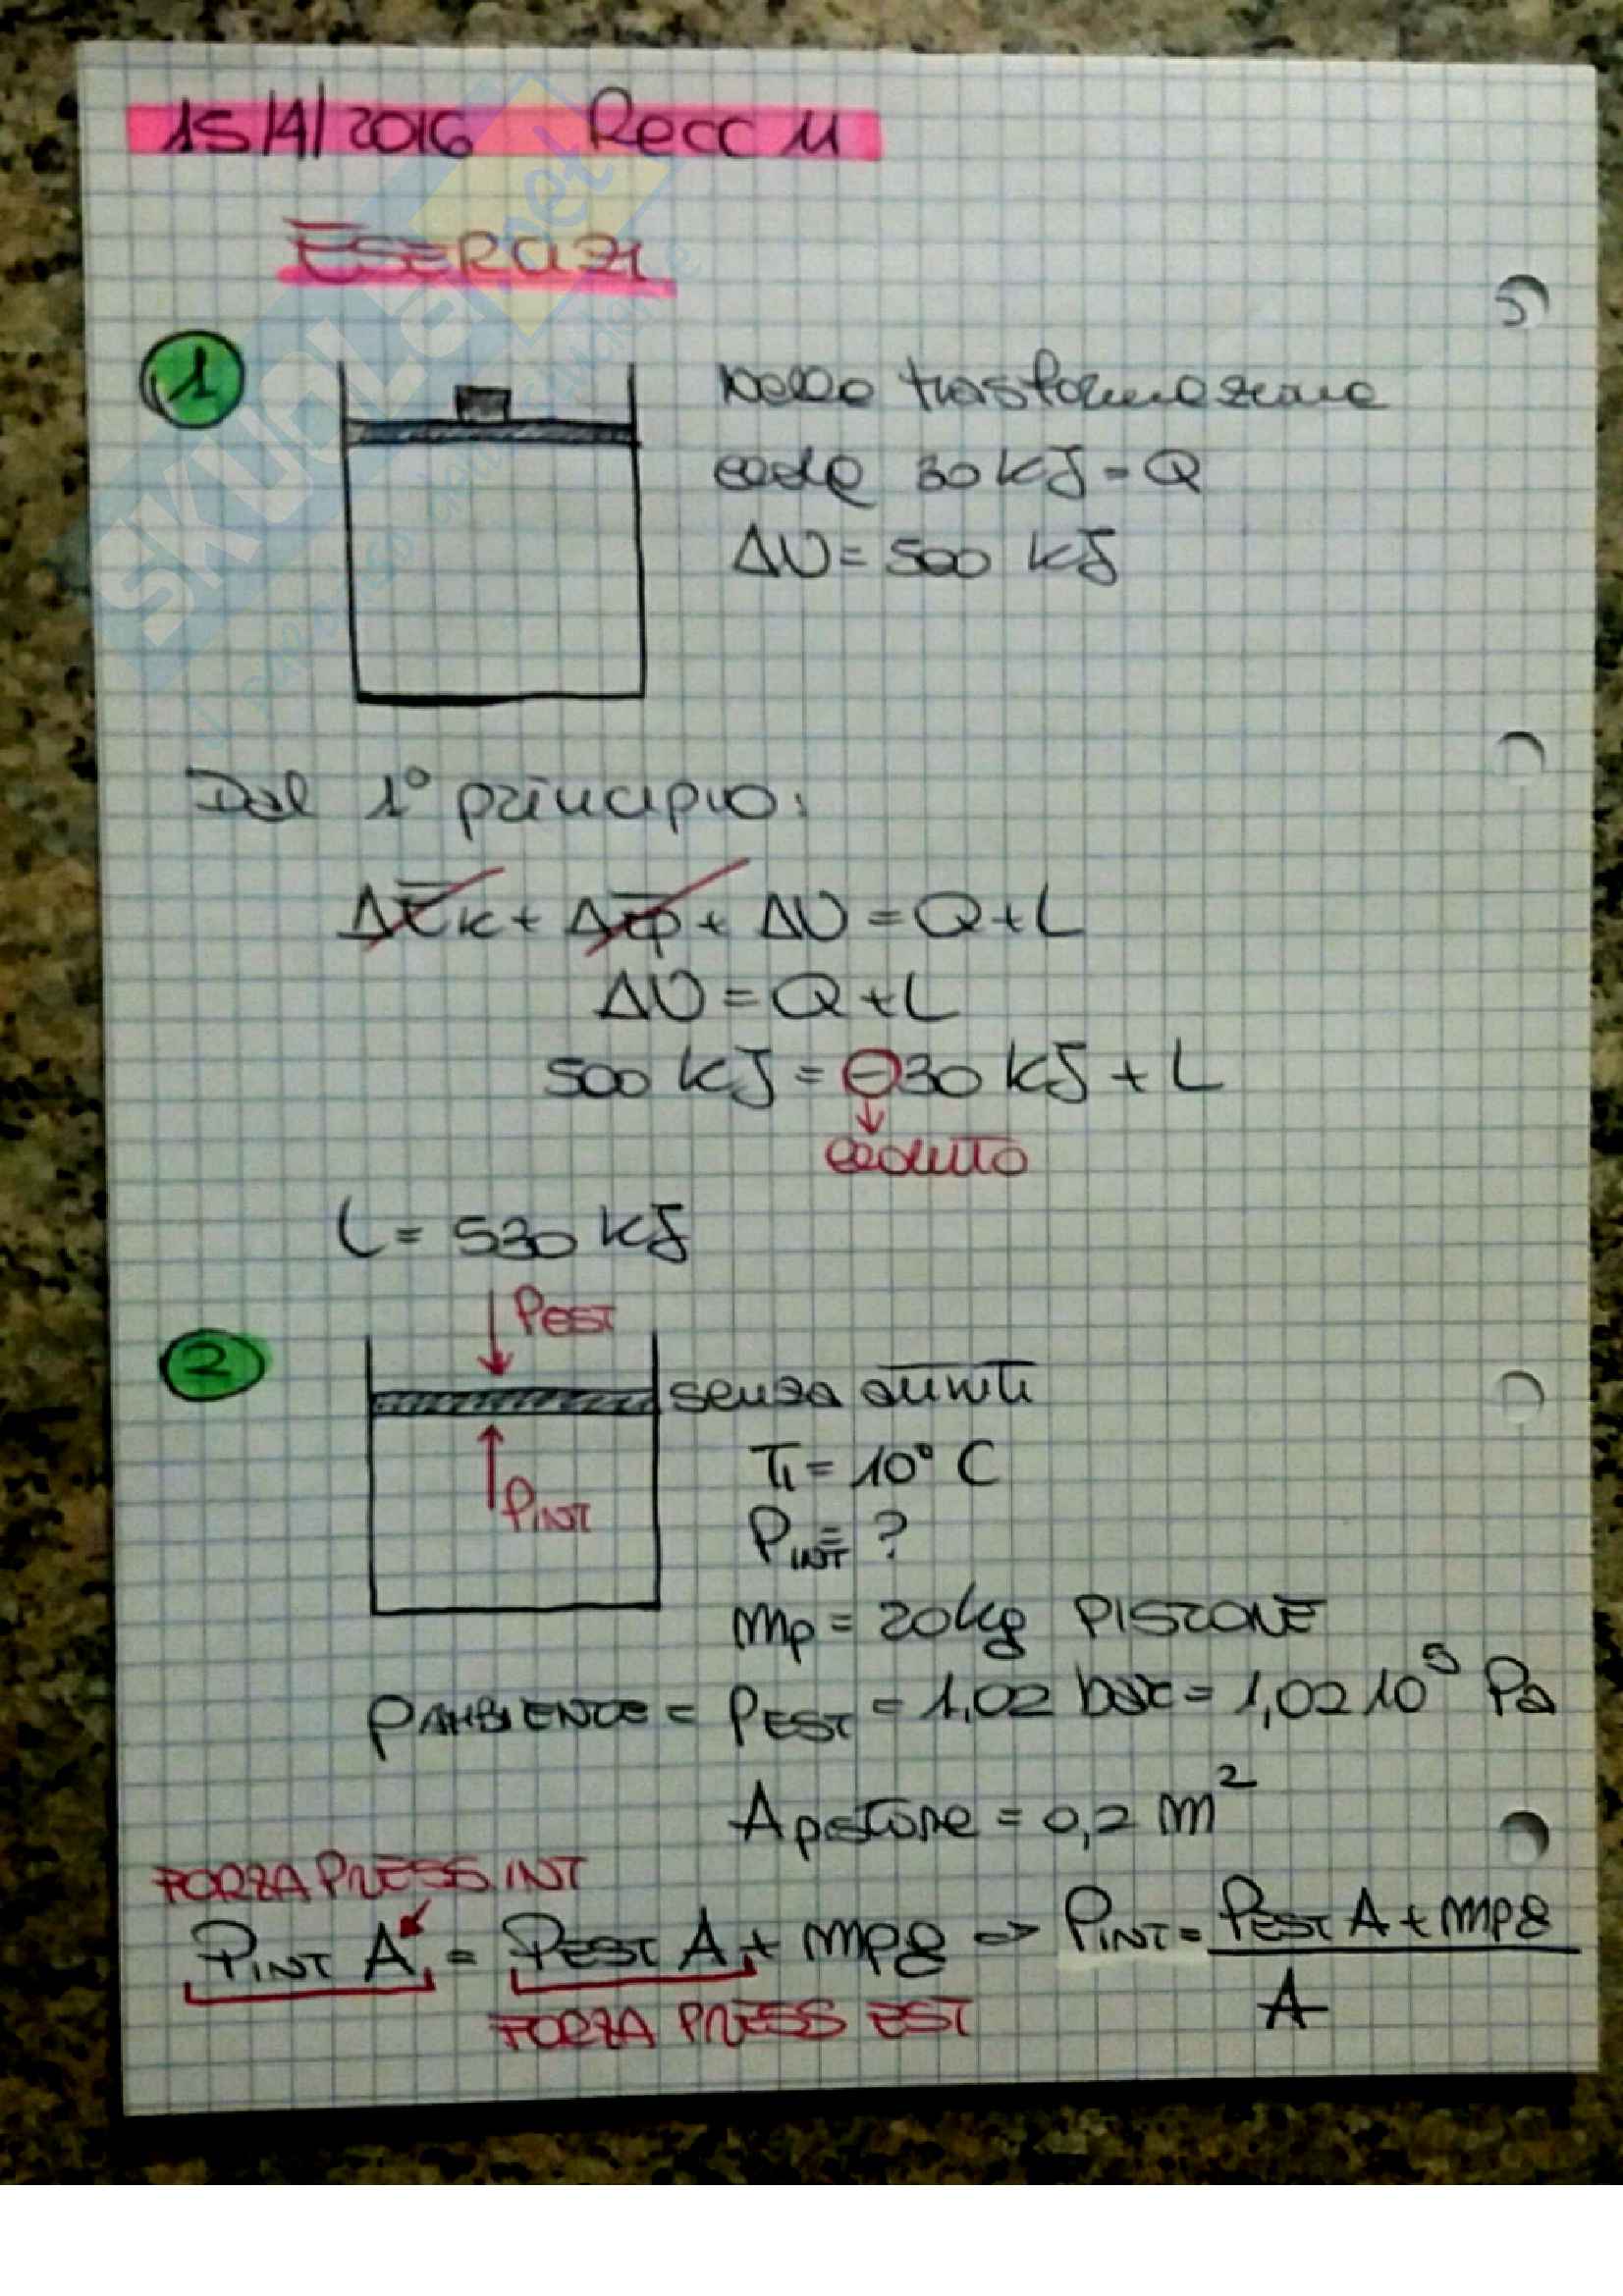 15/4/2016 Recc M
ESERCIZI
1
Nella trasformazione
cede 30 kJ = Q
ΔU = 500 kJ
Dal 1° principio:
ΔEk + ΔEp + ΔU = Q + L
ΔU = Q + L
500 kJ = -30 kJ + L
ceduto
L = 530 kJ
PEST
2
senza attriti
T1 = 10° C
PINT
PINT = ?
mp = 20 kg PISTONE
PAMBIENTE = PEST = 1,02 bar = 1,02 10⁵ Pa
Apistone = 0,2 m²
FORZA PRESS INT
PINT A = PEST A + mpg => PINT = PEST A + mpg / A
FORZA PRESS EST
SKUOLA.net